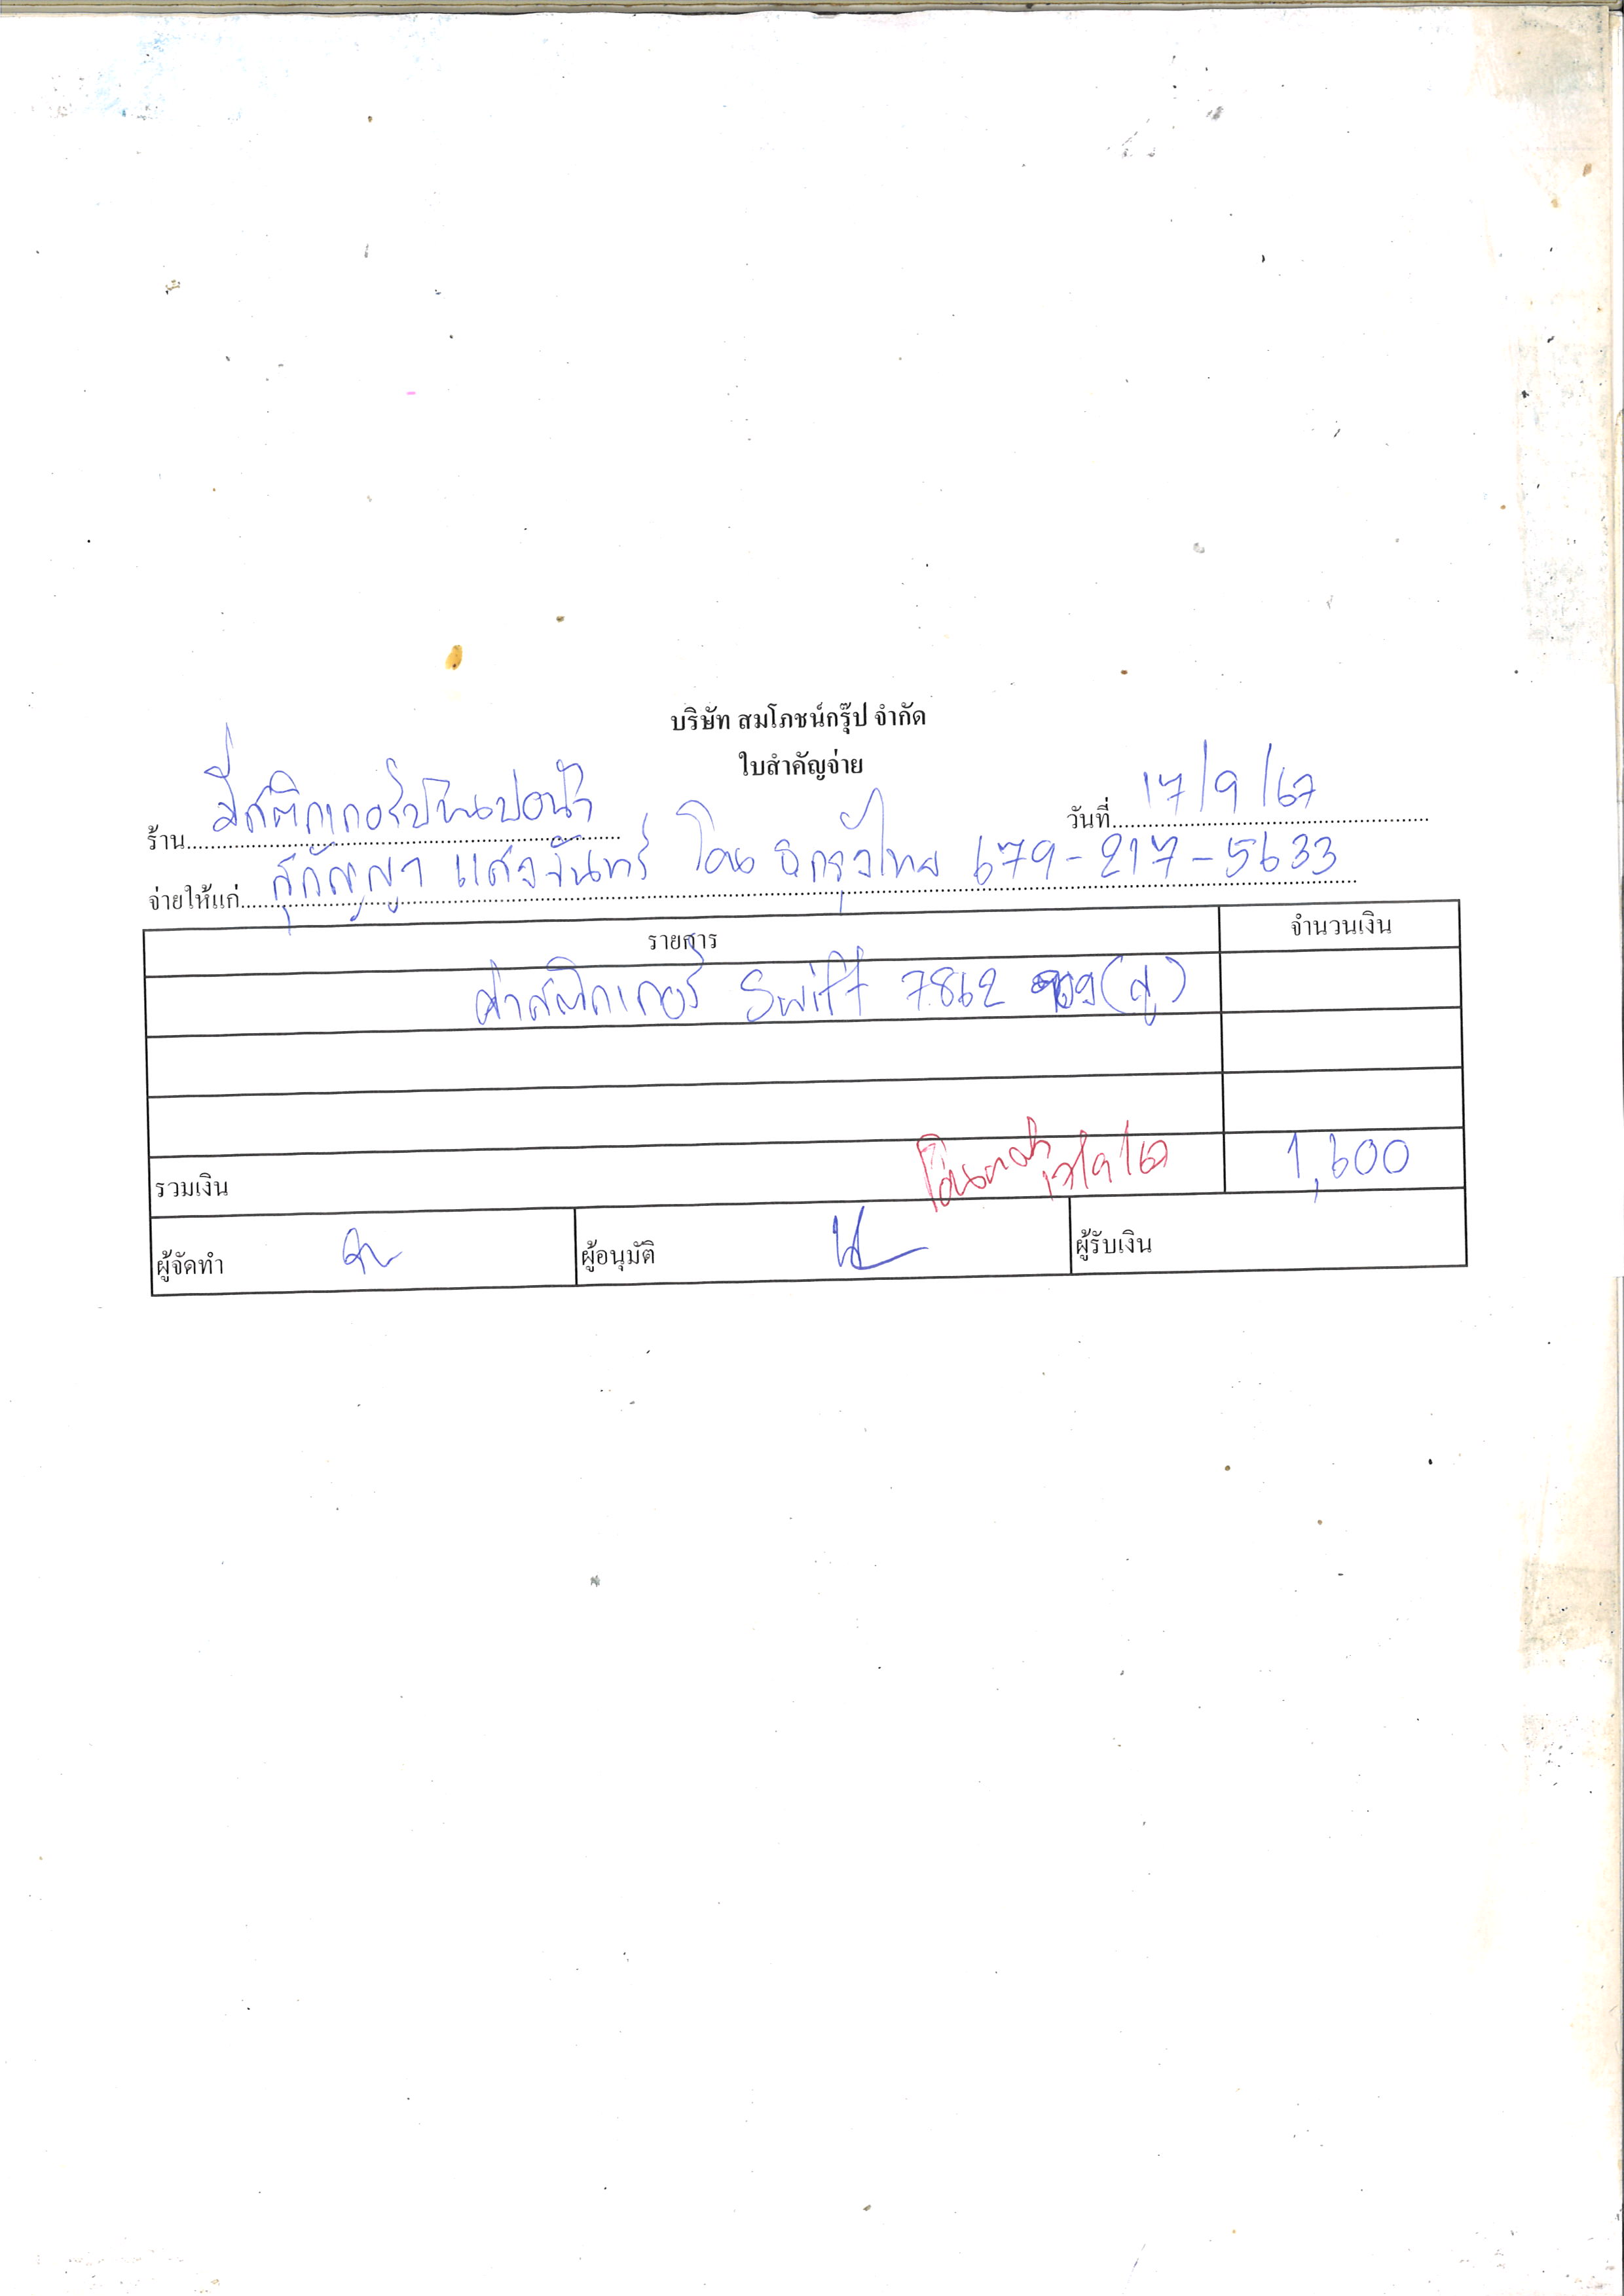 บริษัท สมโภชน์กรุ๊ป จำกัด
ใบสำคัญจ่าย
ร้าน สติกเกอร์บ้านบ่อน้ำ วันที่ 17/9/67
จ่ายให้แก่ สุกัญญา แสงจันทร์ โอน ธ.กรุงไทย 679-217-5633
รายการ จำนวนเงิน
ค่าสติกเกอร์ Swift 7862
รวมเงิน 17/9/67 1,600
ผู้จัดทำ ผู้อนุมัติ ผู้รับเงิน